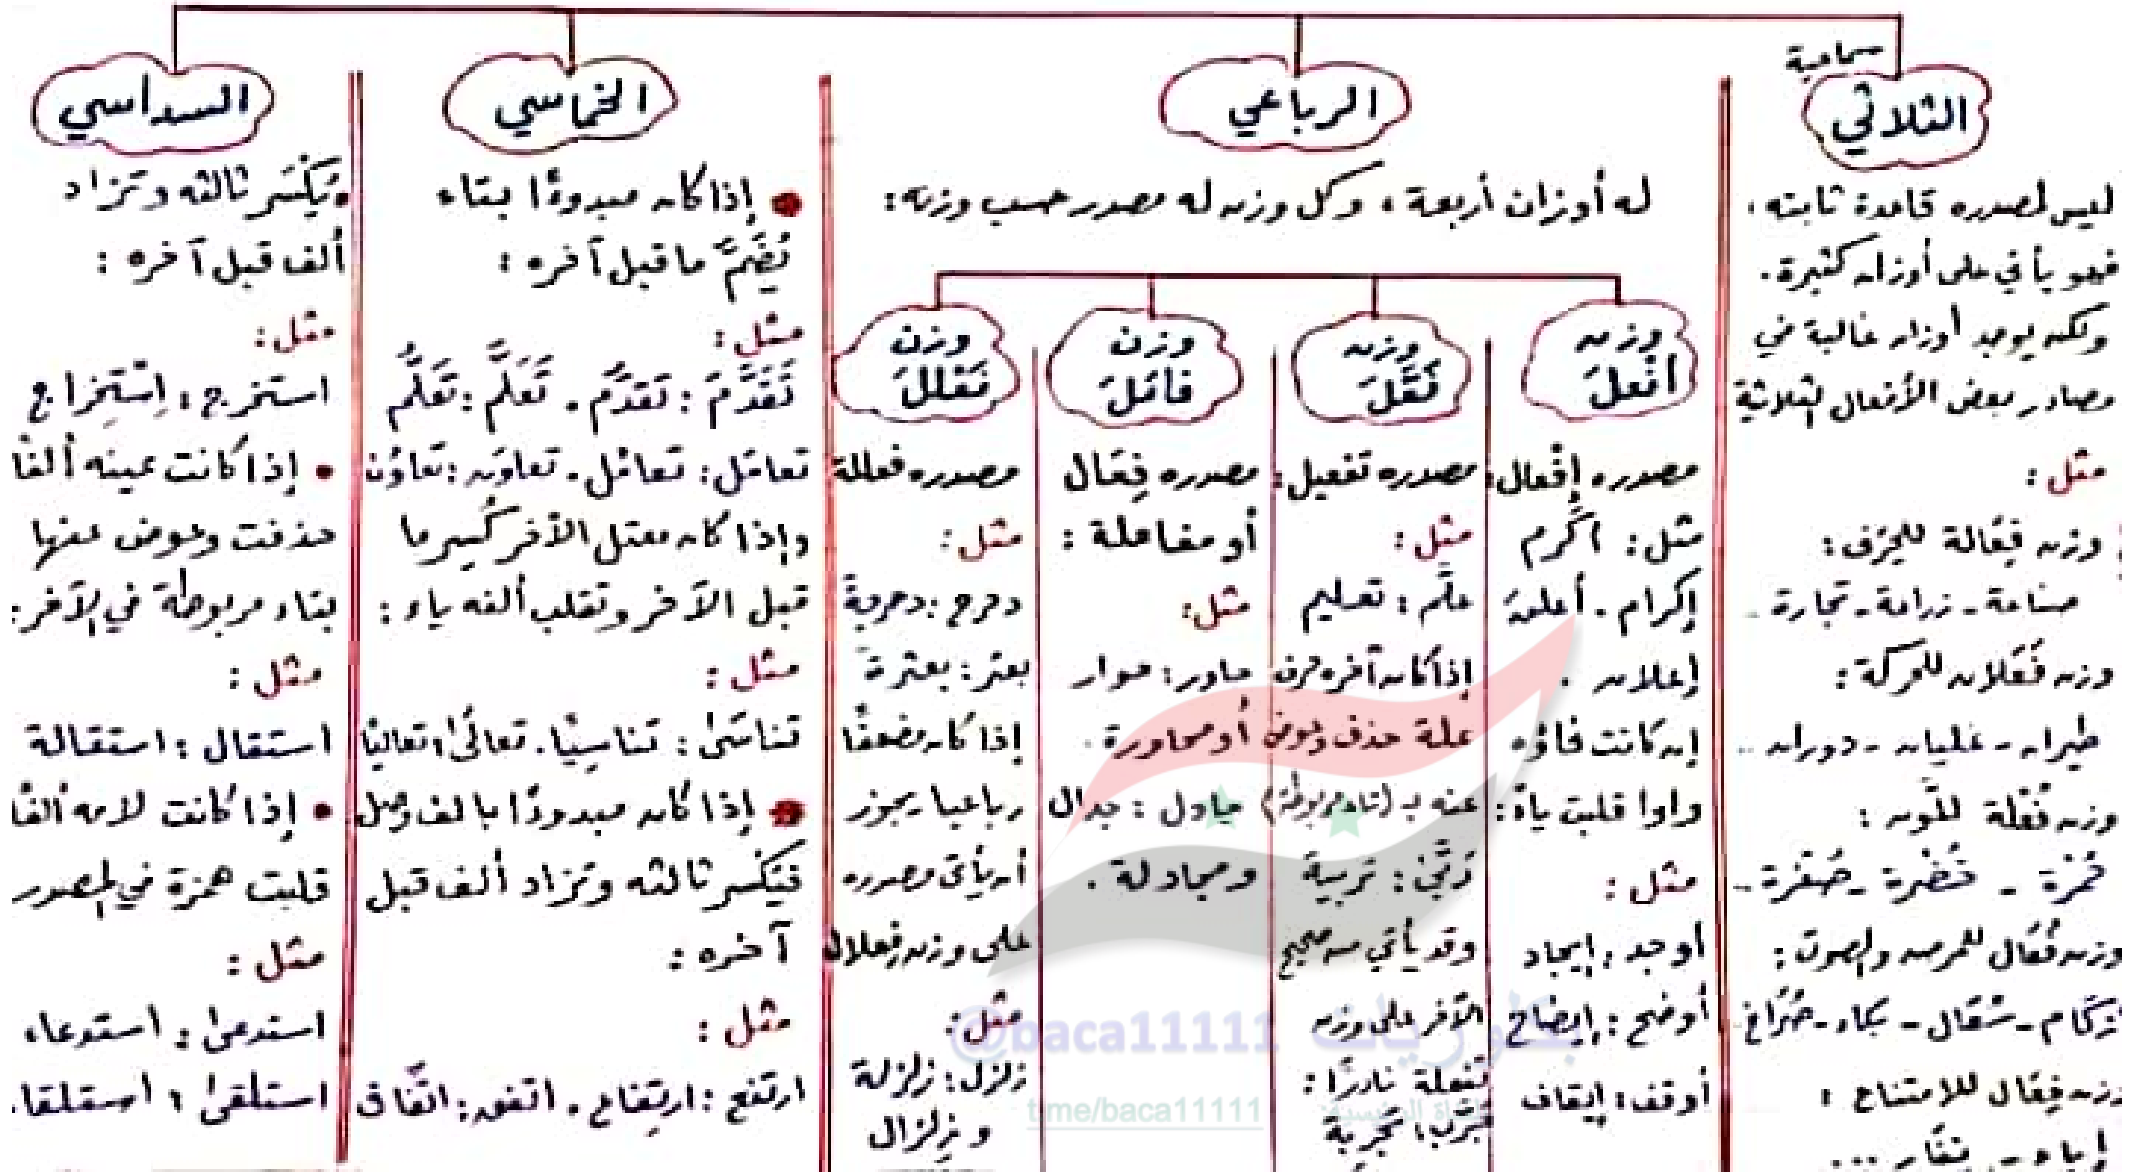 سماعية
الثلاثي
ليس لمصدره قاعدة ثابتة،
فهو يأتي على أوزان كثيرة.
ولكن يوجد أوزان غالبة في
مصادر بعض الأفعال الثلاثية
مثل:
وزن فِعَالة للحِرَف:
صناعة - زراعة - تجارة -
وزن فَعَلان للحركة:
طيران - غليان - دوران ..
وزن فُعْلة للّون:
حُمْرة - خُضْرة - صُفْرة -
وزن فُعَال للمرض والصوت:
زكام - سُعَال - بكاء - صُرَاخ
وزن فِعَال للامتناع:
إباء - نِفَار ...
الرباعي
له أوزان أربعة، وكل وزن له مصدر حسب وزنه:
وزن
أفْعلَ
مصدره إفْعال:
مثل: أكْرم
إكرام - أعلن
إعلان .
إن كانت فاؤه
واوا قلبت ياءً:
مثل:
أوجد: إيجاد
أوضح: إيضاح
أوقف: إيقاف
وزن
فَعَّلَ
مصدره تفعيل:
مثل:
علَّم: تعليم
إذا كان آخره حرف
علة حذف وعوض
عنه بـ (تاء مربوطة)
رَبَّىٰ: تربية
وقد يأتي من صحيح
الآخر على وزن
تفعلة نادرًا:
جَرَّب: تَجرِبة
وزن
فاعَلَ
مصدره فِعَال
أو مفاعلة:
مثل:
حاور: حوار
أو محاورة.
جادل: جدال
ومجادلة.
وزن
فَعْللَ
مصدره فعللة
مثل:
دحرج: دحرجةً
بعثر: بعثرة
إذا كان مضعفًا
رباعيا يجوز
أن يأتي مصدره
على وزن فِعلال
مثل:
زلزل: زلزلة
وزِلزال
الخماسي
• إذا كان مبدوءًا بتاء
يُضَمُّ ما قبل آخره:
مثل:
تَقَدَّمَ: تَقَدُّم. تَعَلَّم: تَعَلُّم
تعامَل: تعامُل. تعاوَن: تعاوُن
وإذا كان معتل الآخر كُسِر ما
قبل الآخر وتقلب ألفه ياء:
مثل:
تناسَىٰ: تناسِيًا. تعالَىٰ: تعاليًا
• إذا كان مبدوءًا بألف وصل
فيُكسر ثالثه وتزاد ألف قبل
آخره:
مثل:
ارتفع: ارتِفاع. اتفق: اتِّفاق
السداسي
• يُكْسَر ثالثه وتزاد
ألف قبل آخره:
مثل:
استخرج: اِسْتِخراج
• إذا كانت عينه ألفًا
حذفت وعوض عنها
بتاء مربوطة في الآخر:
مثل:
استقال: استقالة
• إذا كانت لامه ألفًا
قلبت همزة في المصدر
مثل:
استدعىٰ: استدعاء
استلقىٰ: استلقاء.
@baca11111 بكلوريات
t.me/baca11111